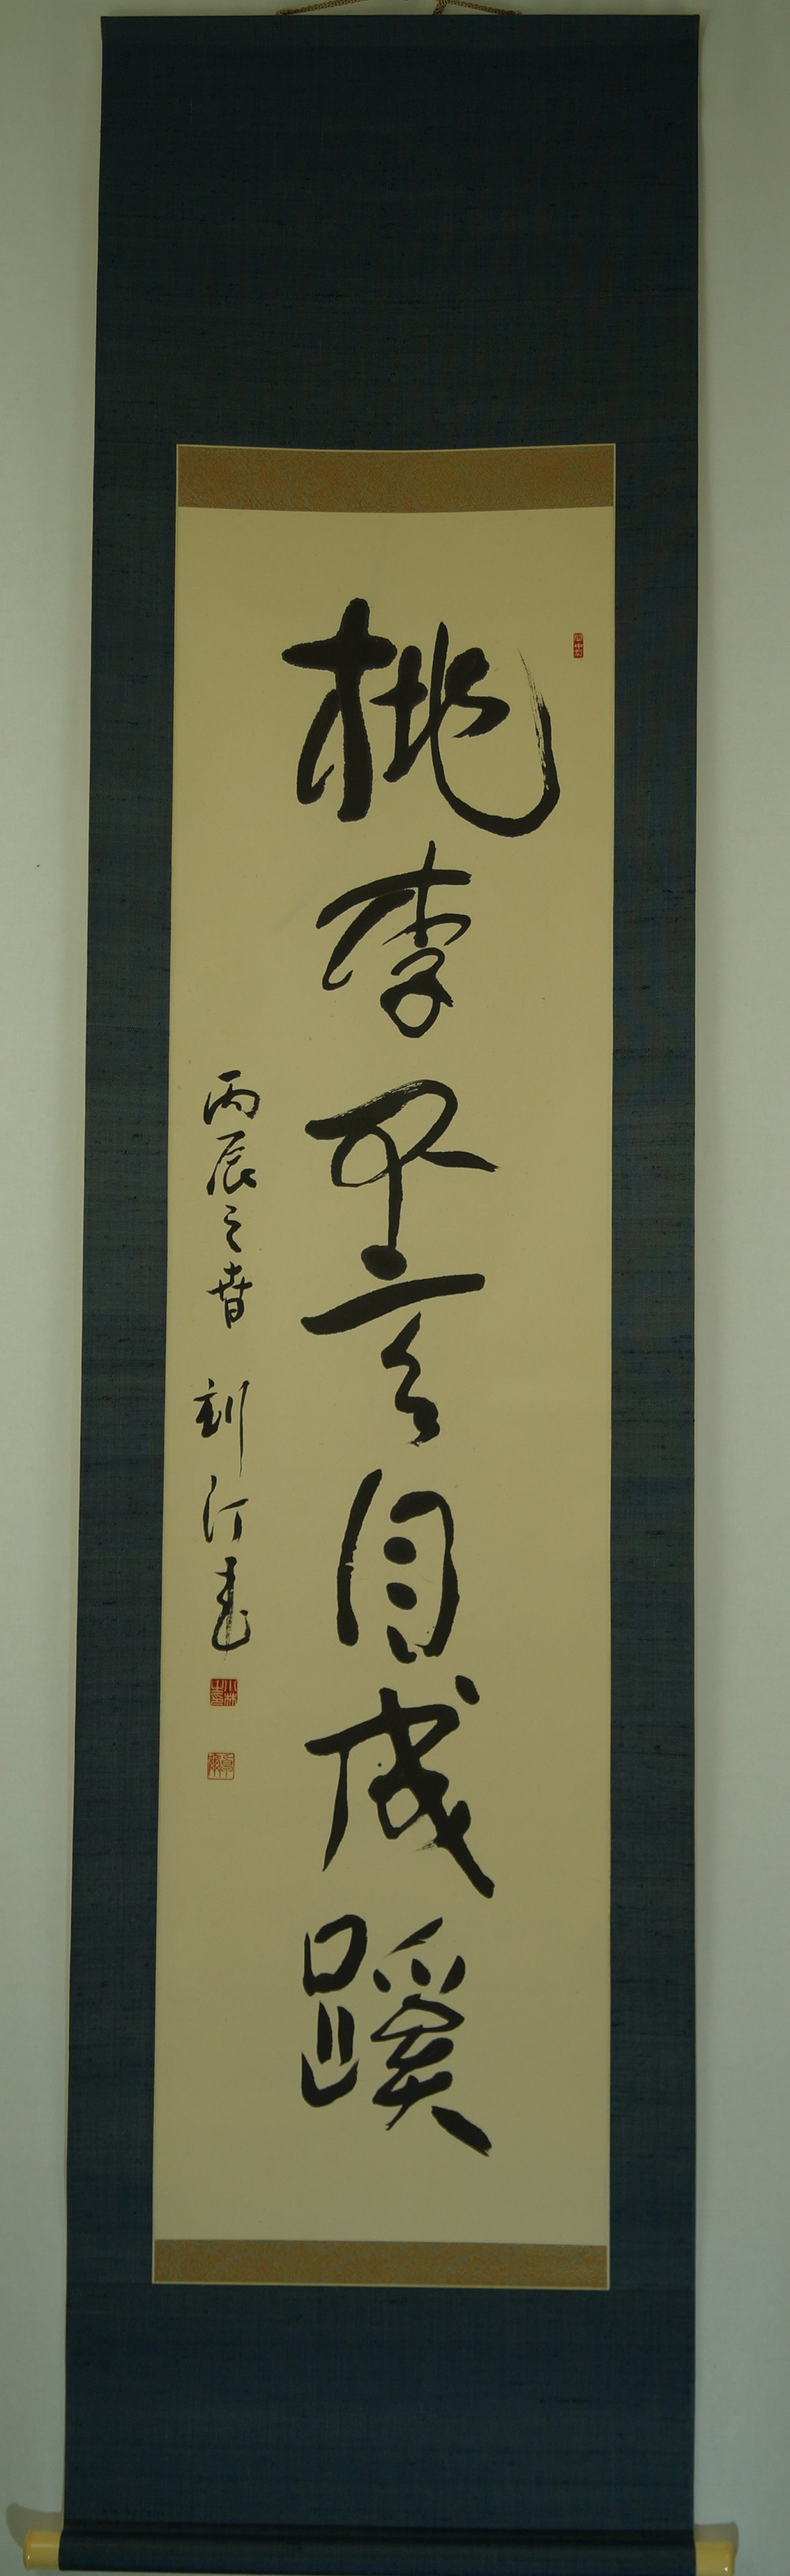 桃李不言自成蹊
丙辰之春 刻汀書